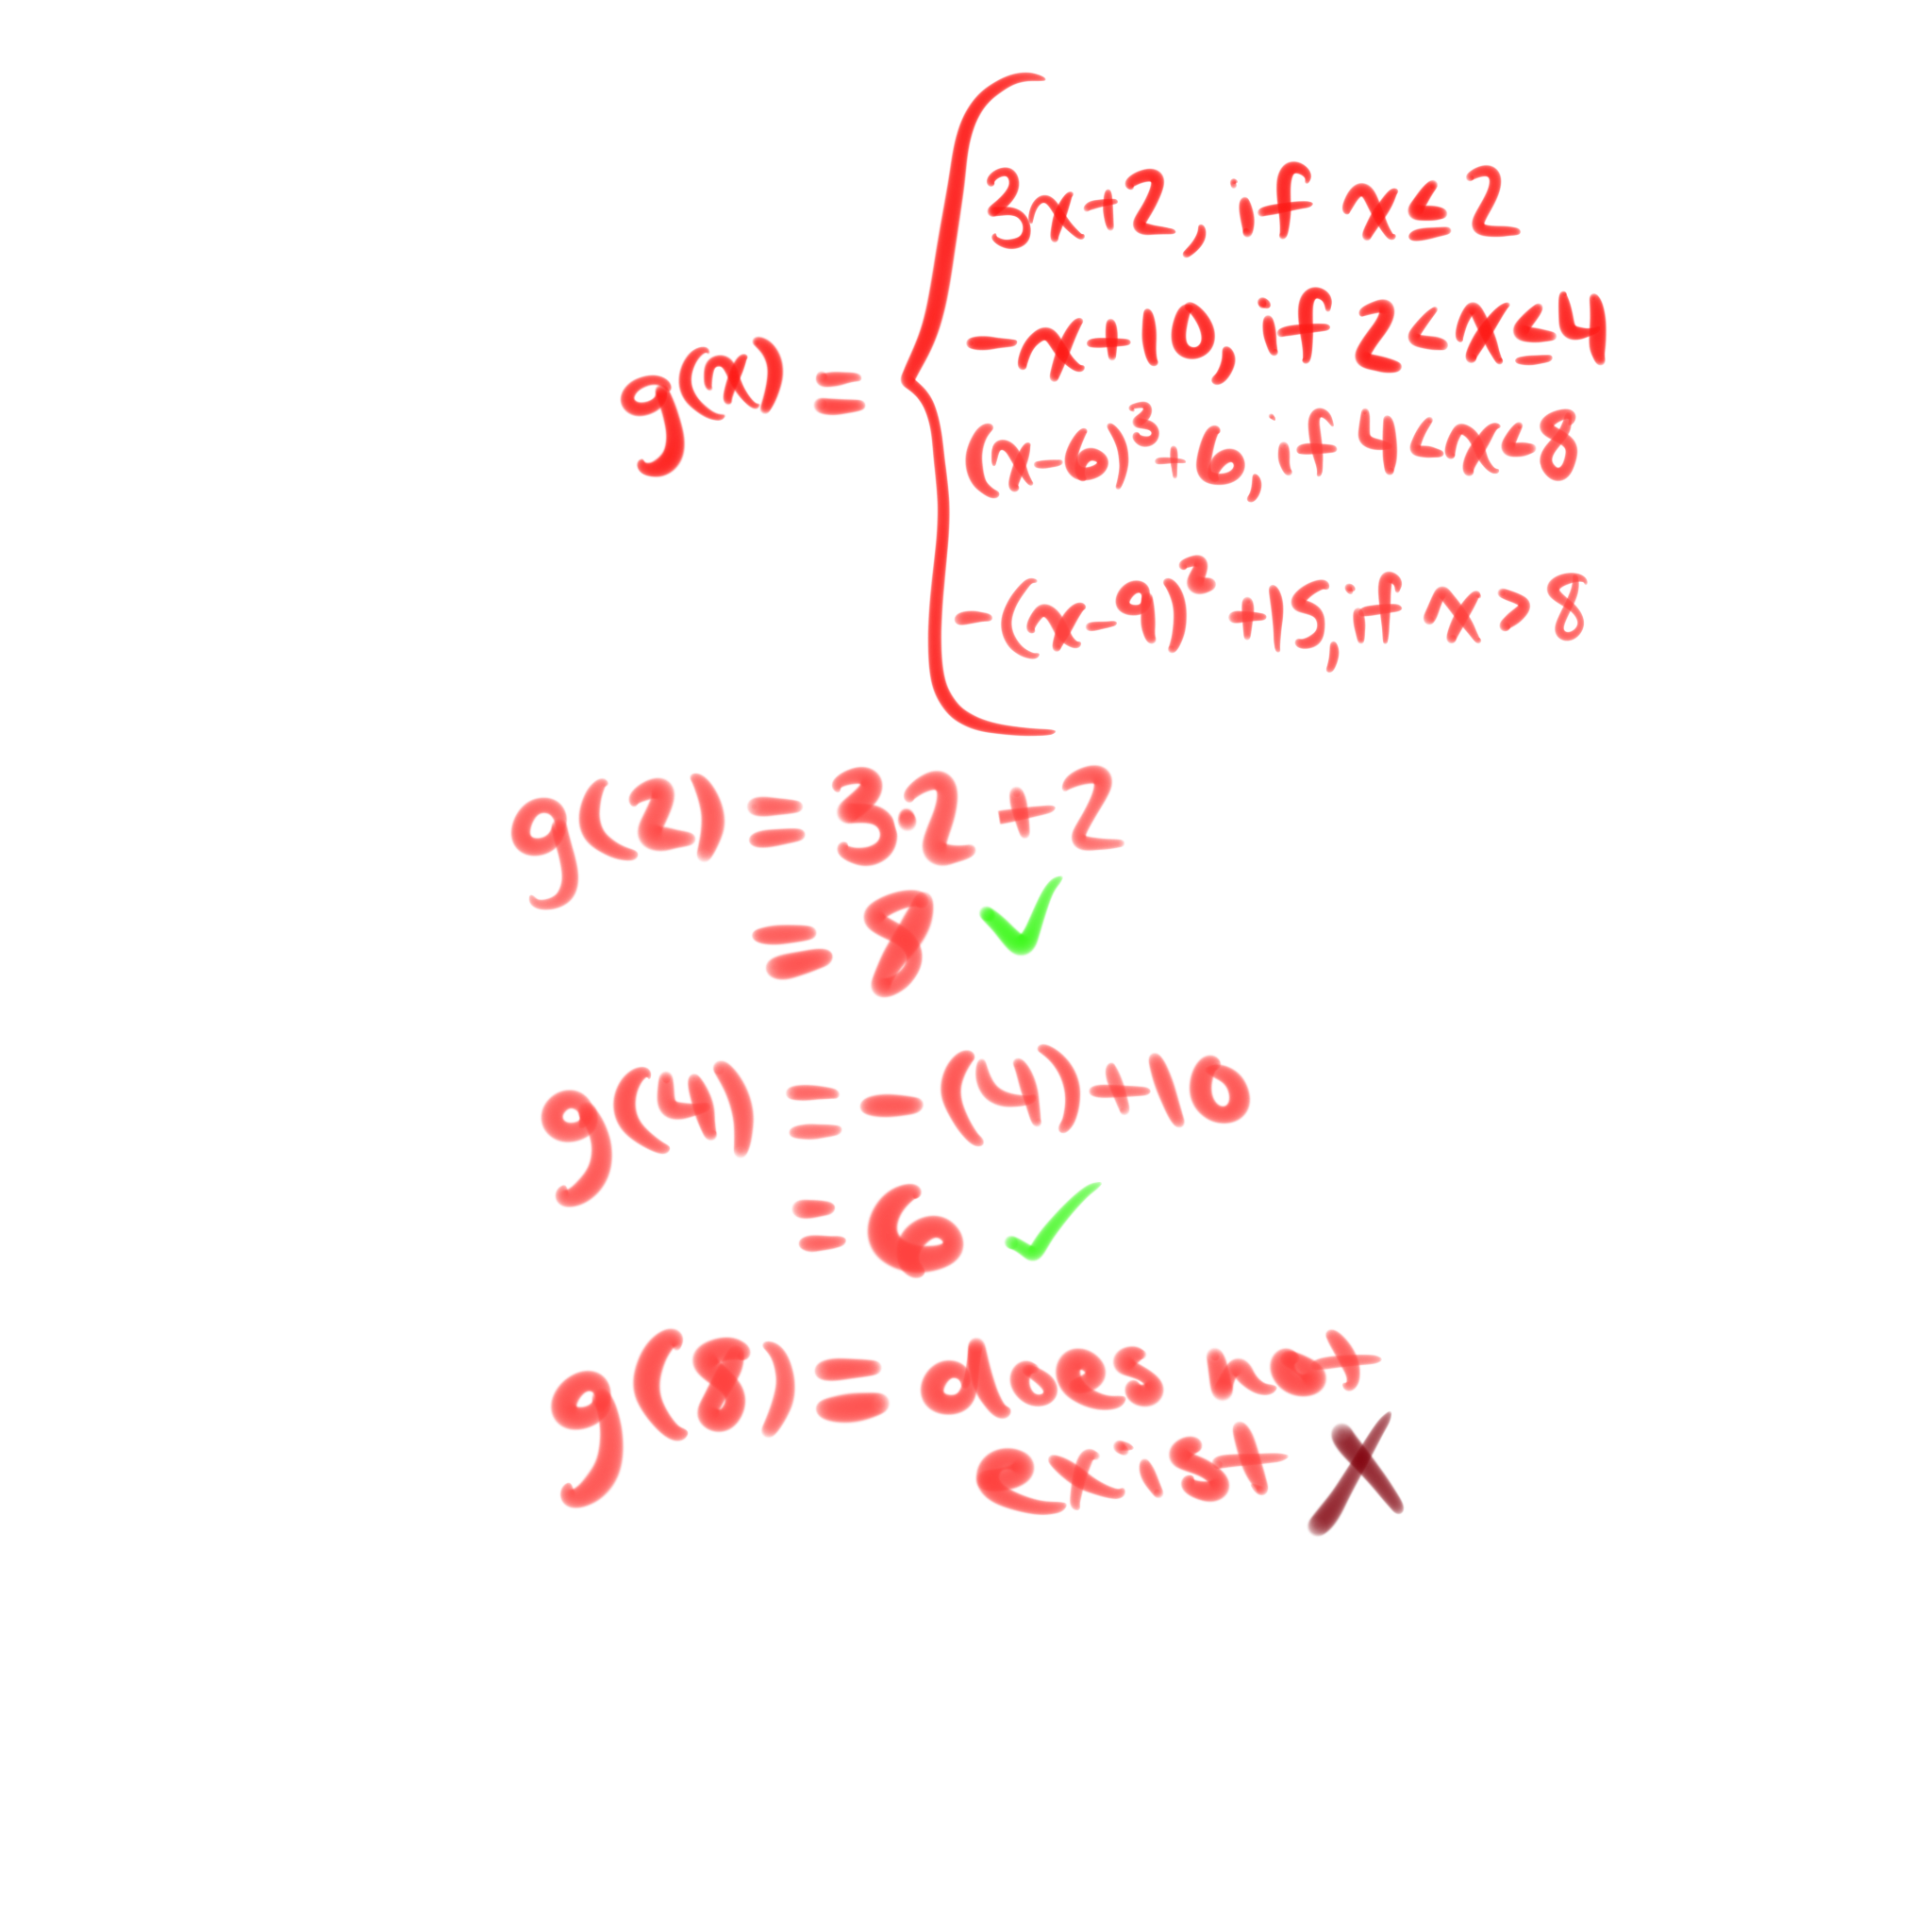 g(x) = { 3x+2, if x≤2
-x+10, if 2<x≤4
(x-6)³+6, if 4<x<8
-(x-9)²+15, if x>8
g(2) = 3·2+2
= 8 ✓
g(4) = -(4)+10
= 6 ✓
g(8) = does not
exist X